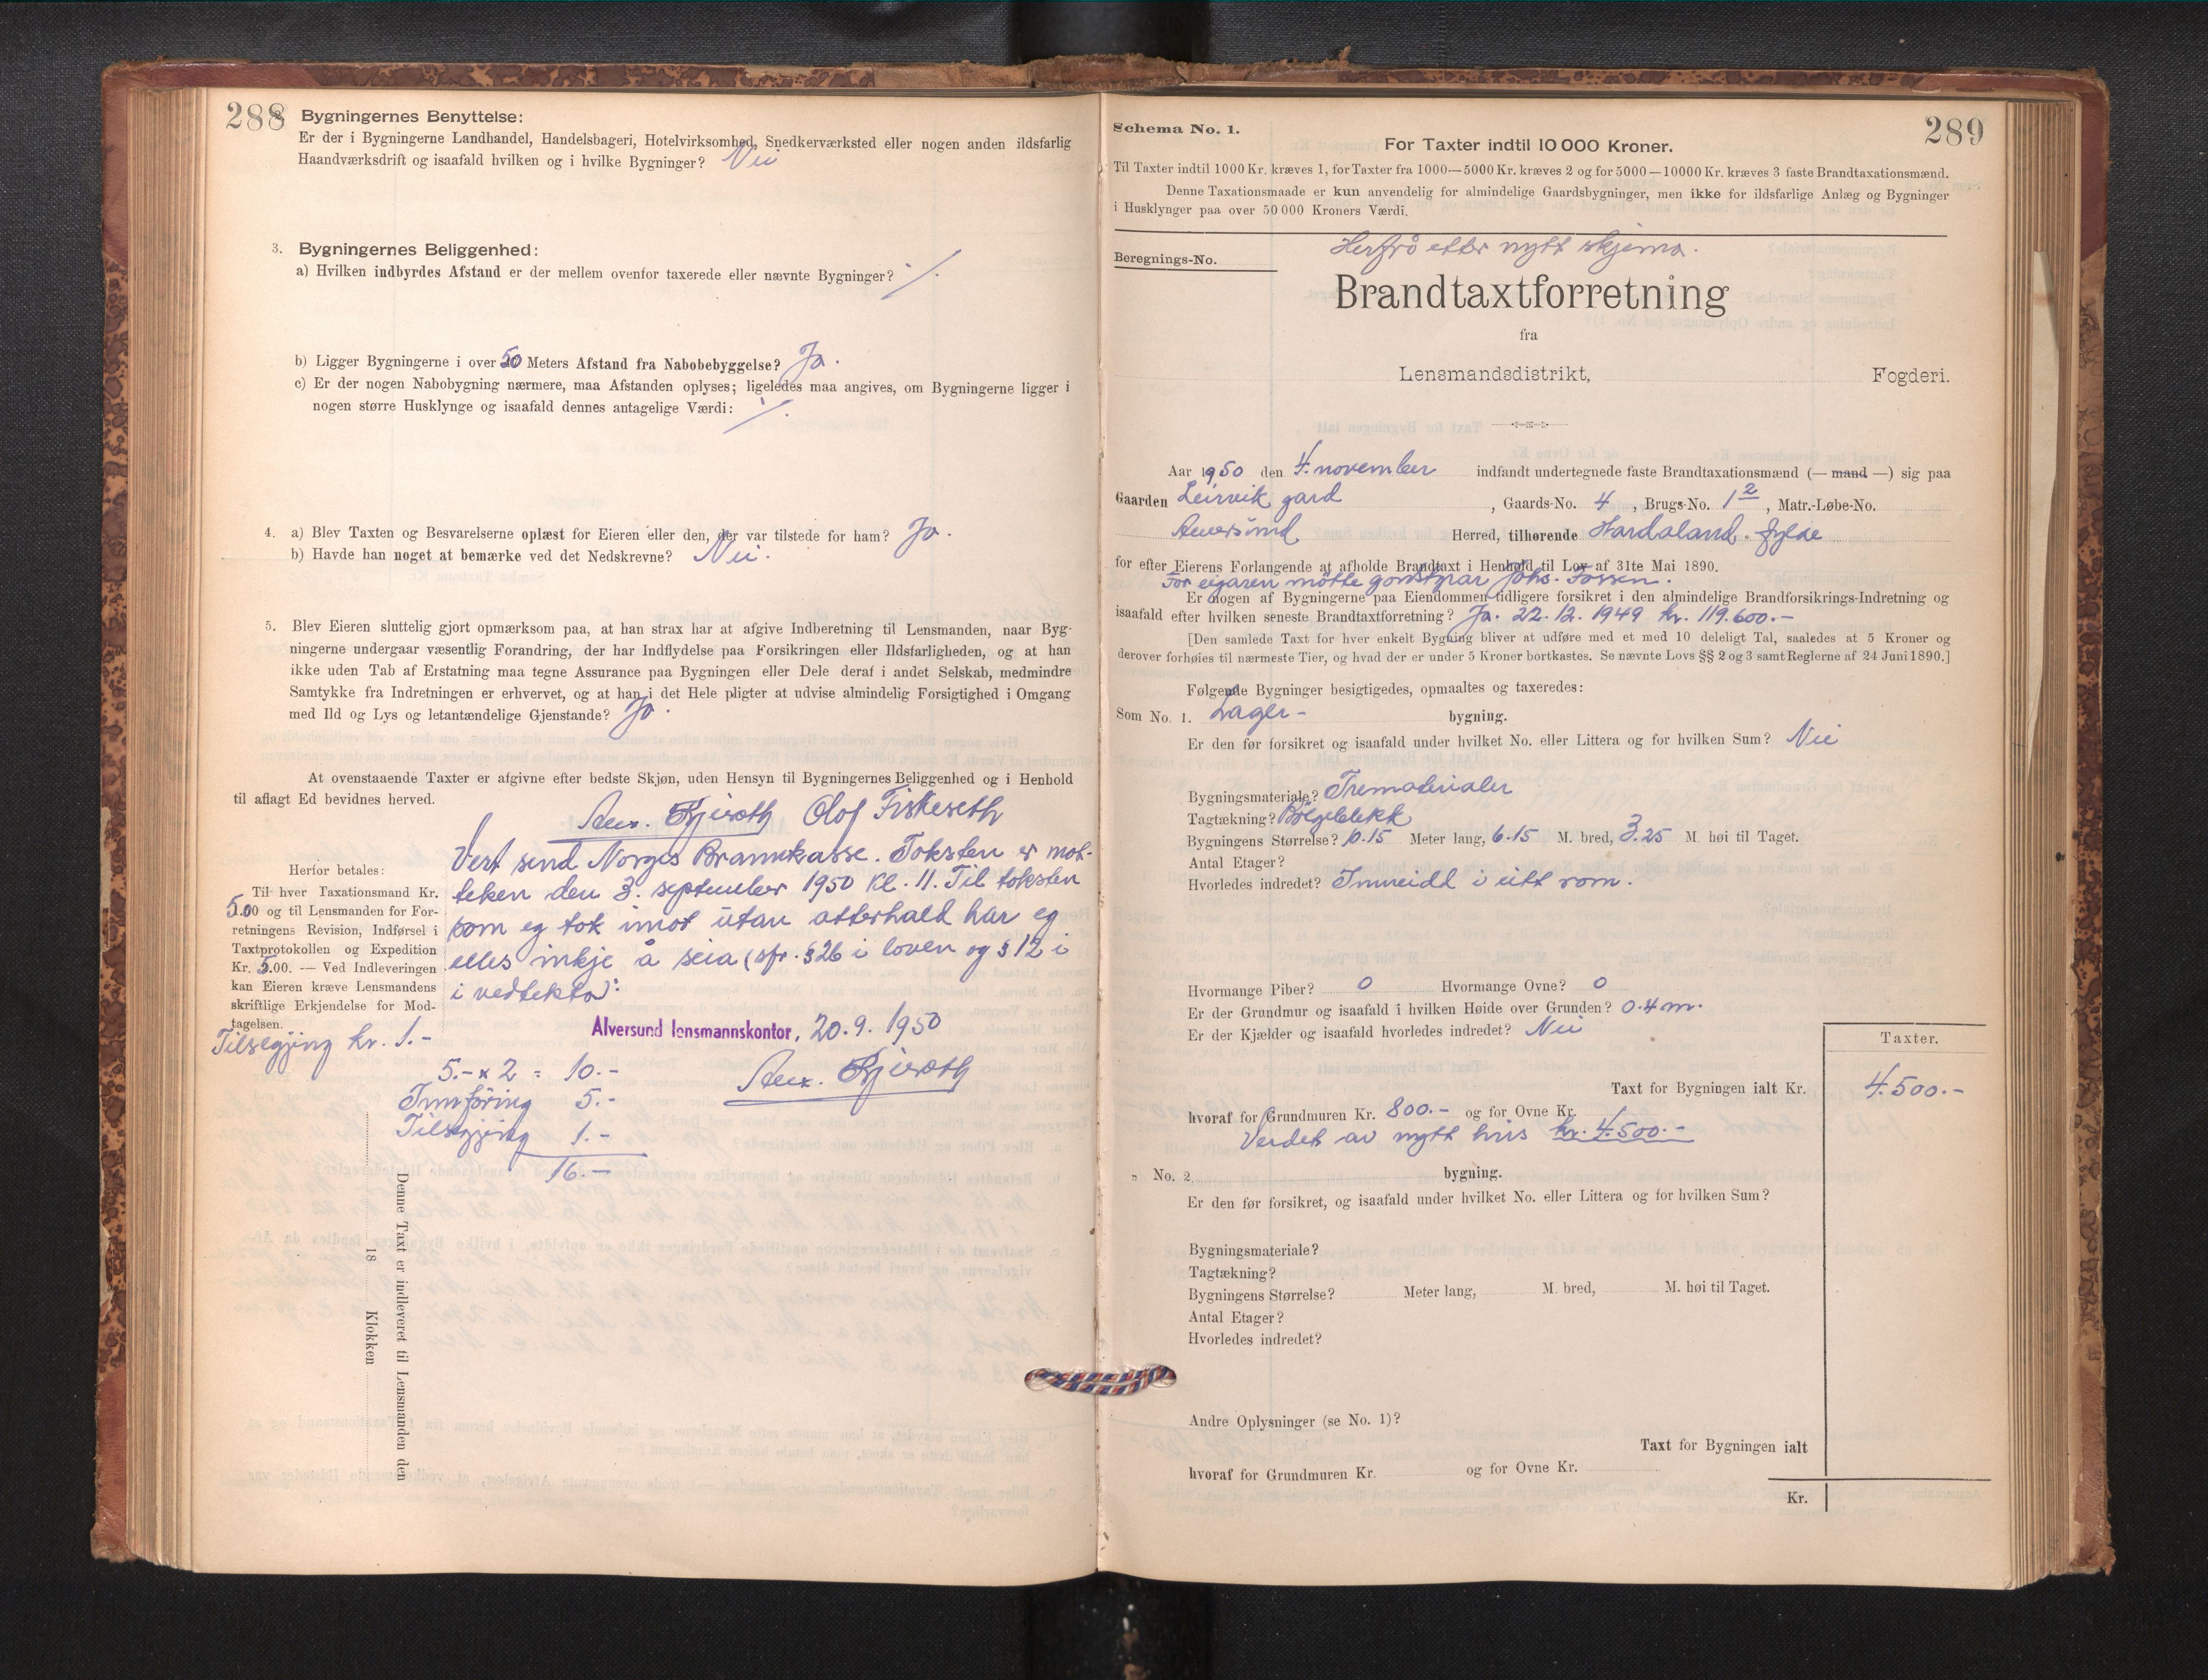 288
Bygningernes Benyttelse:
Er der i Bygningerne Landhandel, Handelsbageri, Hotelvirksomhed, Snedkerværksted eller nogen anden ildsfarlig
Haandværksdrift og isaafald hvilken og i hvilke Bygninger? Nei
3. Bygningernes Beliggenhed:
a) Hvilken indbyrdes Afstand er der mellem ovenfor taxerede eller nævnte Bygninger? ·/.
b) Ligger Bygningerne i over 50 Meters Afstand fra Nabobebyggelse? Ja.
c) Er der nogen Nabobygning nærmere, maa Afstanden oplyses; ligeledes maa angives, om Bygningerne ligger i
nogen større Husklynge og isaafald dennes antagelige Værdi: ·/.
4. a) Blev Taxten og Besvarelserne oplæst for Eieren eller den, der var tilstede for ham? Ja.
b) Havde han noget at bemærke ved det Nedskrevne? Nei.
5. Blev Eieren sluttelig gjort opmærksom paa, at han strax har at afgive Indberetning til Lensmanden, naar Byg-
ningerne undergaar væsentlig Forandring, der har Indflydelse paa Forsikringen eller Ildsfarligheden, og at han
ikke uden Tab af Erstatning maa tegne Assurance paa Bygningen eller Dele deraf i andet Selskab, medmindre
Samtykke fra Indretningen er erhvervet, og at han i det Hele pligter at udvise almindelig Forsigtighed i Omgang
med Ild og Lys og letantændelige Gjenstande? Ja.
At ovenstaaende Taxter er afgivne efter bedste Skjøn, uden Hensyn til Bygningernes Beliggenhed og i Henhold
til aflagt Ed bevidnes herved.
Olof Fiskeseth
Vert send Norges Brannkasse. Taksten er mot-
teken den 3. september 1950 kl. 11. Til taksten
som eg tok imot utan atterhald har eg
elles inkje å seia (sfr. § 26 i loven og § 12 i
i vedtekta):
Alversund lensmannskontor, 20.9.1950
Herfor betales:
Til hver Taxationsmand Kr.
5.00 og til Lensmanden for For-
retningens Revision, Indførsel i
Taxtprotokollen og Expedition
Kr. 5.00. — Ved Indleveringen
kan Eieren kræve Lensmandens
skriftlige Erkjendelse for Mod-
tagelsen.
Tilsegjing kr. 1.-
5.- x 2 = 10.-
Innföring 5.-
Tilsegjing 1.-
16.-
Denne Taxt er indleveret til Lensmanden den
18 Klokken
289
Schema No. 1.
For Taxter indtil 10 000 Kroner.
Til Taxter indtil 1000 Kr. kræves 1, for Taxter fra 1000—5000 Kr. kræves 2 og for 5000—10000 Kr. kræves 3 faste Brandtaxationsmænd.
Denne Taxationsmaade er kun anvendelig for almindelige Gaardsbygninger, men ikke for ildsfarlige Anlæg og Bygninger
i Husklynger paa over 50 000 Kroners Værdi.
Herfrå etter nytt skjema.
Beregnings-No.
Brandtaxtforretning
fra
Lensmandsdistrikt, Fogderi.
Aar 1950 den 4. november indfandt undertegnede faste Brandtaxationsmænd (— mand —) sig paa
Gaarden Leirvik gard, Gaards-No. 4, Brugs-No. 1 2, Matr.-Løbe-No.
Alversund Herred, tilhørende Hordaland fylde
for efter Eierens Forlangende at afholde Brandtaxt i Henhold til Lov af 31te Mai 1890.
For eigaren møtte Johs. Fossen.
Er nogen af Bygningerne paa Eiendommen tidligere forsikret i den almindelige Brandforsikrings-Indretning og
isaafald efter hvilken seneste Brandtaxtforretning? Ja. 22.12.1949 kr. 119.600.-
[Den samlede Taxt for hver enkelt Bygning bliver at udføre med et med 10 deleligt Tal, saaledes at 5 Kroner og
derover forhøies til nærmeste Tier, og hvad der er under 5 Kroner bortkastes. Se nævnte Lovs §§ 2 og 3 samt Reglerne af 24 Juni 1890.]
Følgende Bygninger besigtigedes, opmaaltes og taxeredes:
Som No. 1. Lager- bygning.
Er den før forsikret og isaafald under hvilket No. eller Littera og for hvilken Sum? Nei
Bygningsmateriale? Trematerialer
Tagtækning? Bölgeblekk
Bygningens Størrelse? 10.15 Meter lang, 6.15 M. bred, 3.25 M. høi til Taget.
Antal Etager?
Hvorledes indredet? Innreidd i eitt rom.
Hvormange Piber? 0 Hvormange Ovne? 0
Er der Grundmur og isaafald i hvilken Høide over Grunden? 0.4 m.
Er der Kjælder og isaafald hvorledes indredet? Nei
Taxter.
Taxt for Bygningen ialt Kr. 4.500.-
hvoraf for Grundmuren Kr. 800.- og for Ovne Kr.
Verdet av nytt hus kr. 4.500.-
" No. 2 bygning.
Er den før forsikret, og isaafald under hvilket No. eller Littera og for hvilken Sum?
Bygningsmateriale?
Tagtækning?
Bygningens Størrelse? Meter lang, M. bred, M. høi til Taget.
Antal Etager?
Hvorledes indredet?
Andre Oplysninger (se No. 1)?
Taxt for Bygningen ialt
hvoraf for Grundmuren Kr. og for Ovne Kr.
Kr.